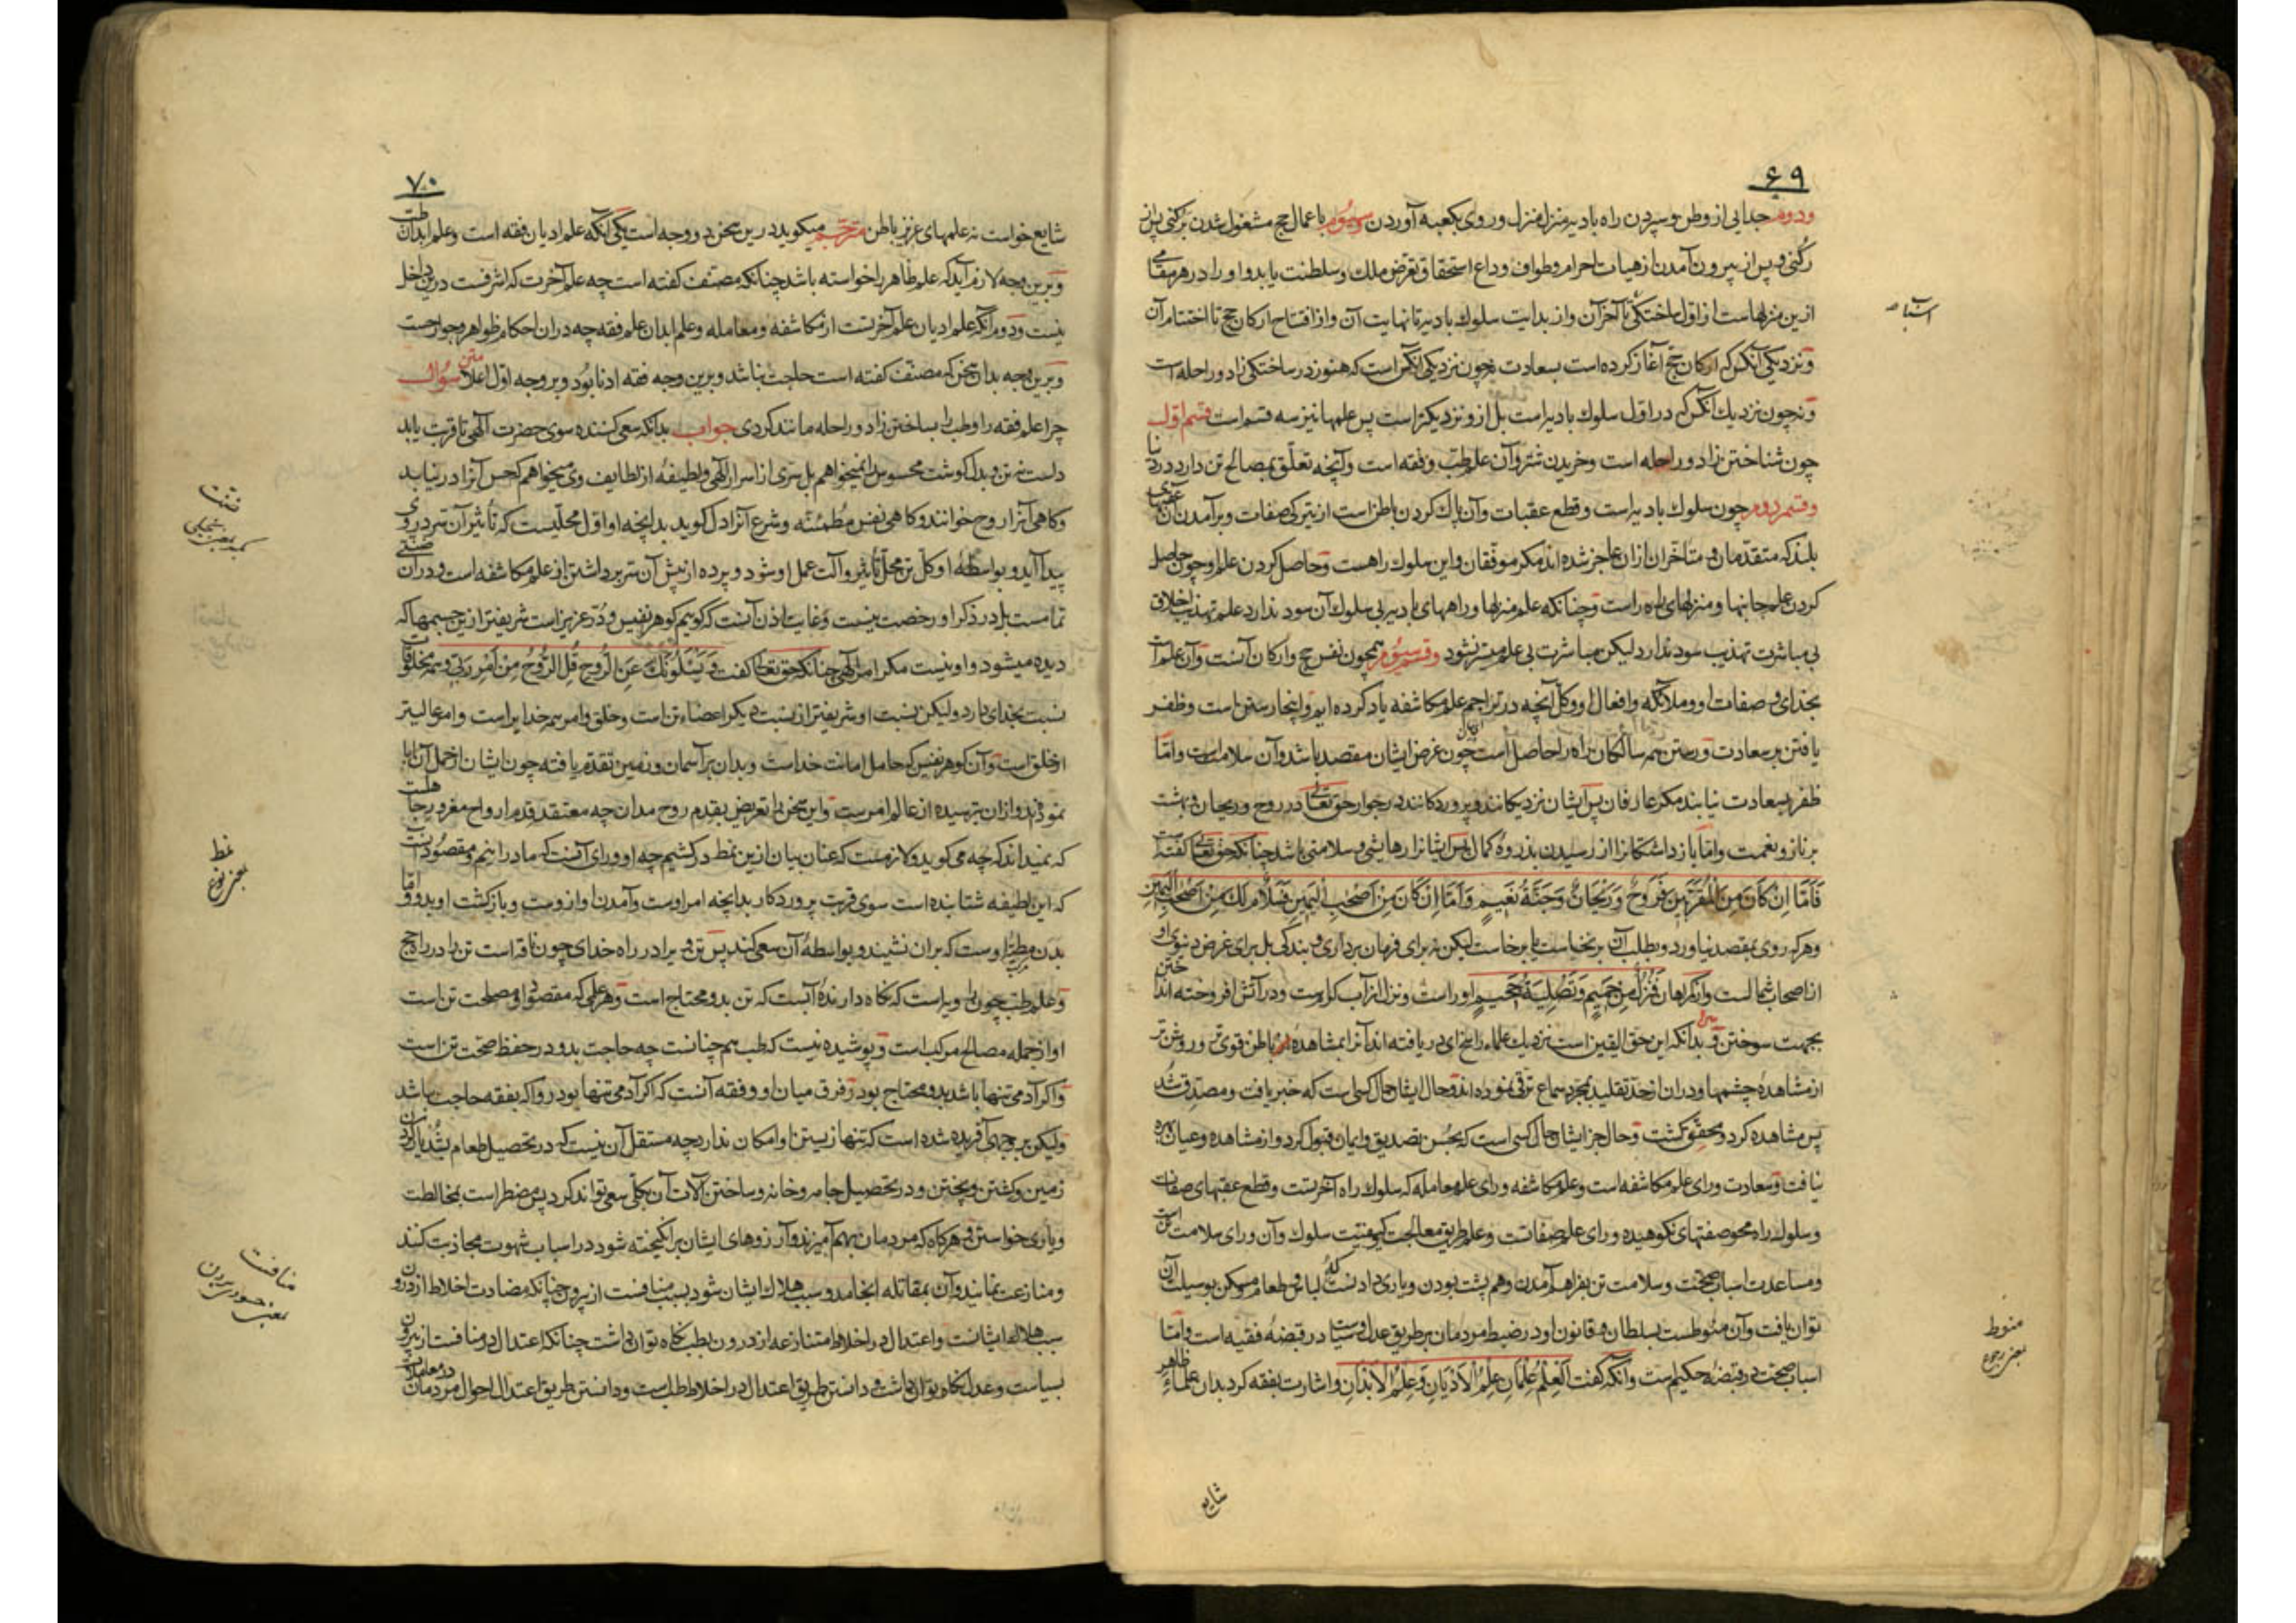 ۶۹
ودوم جدایی از وطن و سپردن راه بادیه منزل منزل و روی بکعبه آوردن وسیوم باعمال حج مشغول شدن برکنی پس از
رکنی و پس از بیرون آمدن از هیات احرام و طواف وداع استحقاق تعرض ملک و سلطنت یابد و او را در هر مقامی
ازین منزلهاست از اول ساختگی تا آخر آن و از بدایت سلوک بادیه تا نهایت آن و از افتتاح ارکان حج تا اختتام آن
و نزدیکی آنکس که ارکان حج آغاز کرده است بسعادت نه چون نزدیکی آنکس است که هنوز در ساختکی زاد و راحله است
و نه چون نزدیک آنکس که در اول سلوک بادیه است بل ازو نزدیکتر است پس علمها نیز سه قسم است قسم اول
چون شناختن زاد و راحله است و خریدن شتر و آن علم طب و فقه است و آنچه تعلق بمصالح تن دارد در دنیا
وقسم دوم چون سلوک بادیه است و قطع عقبات و آن پاک کردن باطن است از تیرکی صفات و برآمدن آن عقبهای
بلند که متقدمان و متاخران ازان عاجز شده اند مکر موفقان و این سلوک راهست و حاصل کردن علم او چون حاصل
کردن علم جانبها و منزلهای راه است و چنانکه علم منزلها و راههای بادیه بی سلوک آن سود ندارد علم تهذیب اخلاق
بی مباشرت تهذیب سود ندارد لیکن مباشرت بی علم میسر نشود وقسم سیوم همچون نفس حج و ارکان آنست و آن علم است
بخدای و صفات او و ملائکه و افعال او و کل آنچه در تراجم علم مکاشفه یاد کرده ایم و اینجا رستن است و ظفر
یافتن بر سعادت و رستن همه سالکان راه را حاصل است چون غرض ایشان مقصد باشد و آن سلامت است و اما
ظفر بسعادت نیابند مکر عارفان پس ایشان نزدیکانند و پروردکانند در جوار حق تعالی در روح و ریحان و بهشت
بر ناز و نعمت و اما باز داشتکانرا از رسیدن بذروه کمال پس ایشانرا رهایشی و سلامتی باشد چنانکه حق تعالی کفته است
فَأَمَّا إِنْ كَانَ مِنَ الْمُقَرَّبِينَ فَرَوْحٌ وَرَيْحَانٌ وَجَنَّةُ نَعِيمٍ وَأَمَّا إِنْ كَانَ مِنْ أَصْحَابِ الْيَمِينِ فَسَلَامٌ لَكَ مِنْ أَصْحَابِ الْيَمِينِ
و هرکه روی بمقصد نیاورد و بطلب آن برنخاست یا برخاست لیکن نه برای فرمان برداری و بندکی بل برای غرض دنیوی او
از اصحاب شمالست و از کمراهان فَنُزُلٌ مِنْ حَمِيمٍ وَتَصْلِيَةُ جَحِيمٍ او راست و نزل از آب کرمست و در آتش افروخته انداختن
بجهت سوختن و بدانکه این حق الیقین است نزدیک علماء راسخ ای دریافته اند آنرا بمشاهده از باطن قوی تر و روشن تر
از مشاهده چشمها و دران از حد تقلید بمجرد سماع ترقی نموده اند و حال ایشان حال کسی است که خبر یافت و مصدق شد
پس مشاهده کرد و محقق کشت و حال جز ایشان حال کسی است که بحسن تصدیق و ایمان قبول کرد و از مشاهده و عیان بهره
نیافت و سعادت ورای علم مکاشفه است و علم مکاشفه ورای علم معامله که سلوک راه آخرتست و قطع عقبهای صفات
و سلوک راه محو صفتهای نکوهیده ورای علم صفاتست و علم طریق معالجت کیفیت سلوک و آن ورای سلامت تن است
و مساعدت اسباب صحت و سلامت تن بفراهم آمدن و هم پشت بودن و یاری دادنست که لباس و طعام و مسکن بوسیلت آن
توان یافت و آن منوطست بسلطان و قانون او در ضبط مردمان بر طریق عدل و سیاست در قبضه فقیه است و اما
اسباب صحت در قبضه حکیم است و آنکه کفت الْعِلْمُ عِلْمَانِ عِلْمُ الْأَدْيَانِ وَعِلْمُ الْأَبْدَانِ و اشارت بفقه کرد بدان علماء ظاهر
شایع
منوط
بمعنی رجوع
۷۰
شایع خواست نه علمهای عزیز باطن مترجم میکوید درین سخن دو وجه است یکی آنکه علم ادیان فقه است و علم ابدان طب
و برین وجه لازم آید که علم ظاهر را خواسته باشد چنانکه مصنف کفته است چه علم آخرت که اشرفست درین داخل
نیست و دوم آنکه علم ادیان علم آخرتست از مکاشفه و معامله و علم ابدان علم فقه چه دران احکام ظواهر و جوارحست
و برین وجه بدان سخن که مصنف کفته است حاجت نباشد و برین وجه فقه ادنا بود و بر وجه اول اعلا متن سؤال
چرا علم فقه را و طب را بساختن زاد و راحله مانند کردی جواب بدانکه سعی کننده سوی حضرت آلهی تا قربت یابد
دلست نه تن و بدل کوشت محسوس را نمیخواهم بل سری از اسرار آلهی و لطیفه از لطایف وی میخواهم که حس آنرا درنیابد
و کاهی آنرا روح خوانند و کاهی نفس مطمئنه و شرع آنرا دل کوید بدانچه او اول محلیست که تاثیر آن سر در وی
پیدا آید و بواسطه او کل تن محل تاثیر و آلت عمل او شود و پرده از پیش آن سر برداشتن از علم مکاشفه است و دران ضنتی
تمامست بل در ذکر او رخصت نیست و غایت اذن آنست که کوییم کوهر نفیس و در عزیز است شریفتر ازین جسمها که
دیده میشود و او نیست مکر امر آلهی چنانکه حق تعالی کفت وَيَسْئَلُونَكَ عَنِ الرُّوحِ قُلِ الرُّوحُ مِنْ أَمْرِ رَبِّي و همه مخلوقات
نسبت بخدای دارد ولیکن نسبت او شریفتر از نسبت دیکر اعضاء تن است و خلق و امر همه خدایراست و امر عالیتر
از خلق است و آن کوهر نفیس که حامل امانت خداست و بدان بر آسمان و زمین تقدم یافته چون ایشان از حمل آن ابا
نمودند و ازان بترسیده از عالم امرست و این سخن را تعریض بقدم روح مدان چه معتقد قدم ارواح مغرور جاهلست
که نمیداند که چه می کوید و لازمست که عنان بیان ازین نمط درکشیم چه او ورای آنست که ما درانیم و مقصود آنست
که این لطیفه شتابنده است سوی قربت پروردکار بدانچه امر اوست و آمدن او ازوست و بازکشت او بدو و اما
بدن مطیه اوست که بران نشیند و بواسطه آن سعی کند پس تن ویرا در راه خدای چون ناقه است تن را در راه حج
و علم طب چون راویه است که نکاه دارنده آبست که تن بدو محتاج است و هر علمی که مقصود او مصلحت تن است
او از جمله مصالح مرکب است و پوشیده نیست که طب هم چنانست چه حاجت بدو در حفظ صحت تن است
و اکر آدمی تنها باشد بدو محتاج بود و فرق میان او و فقه آنست که اکر آدمی تنها بود روا که بفقه حاجت نباشد
ولیکن بر وجهی آفریده شده است که تنها زیستن او امکان ندارد چه مستقل آن نیست که در تحصیل طعام بشدیار کردن
زمین و کشتن و پختن و در تحصیل جامه و خانه و ساختن آلات آن بکلی سعی تواند کرد پس مضطر است بمخالطت
و یاری خواستن و هرکاه که مردمان بهم آمیزند و آرزوهای ایشان برانکیخته شود در اسباب شهوت مجاذبت کنند
و منازعت نمایند و آن بمقاتله انجامد و سبب هلاک ایشان شود بسبب منافست از بیرون چنانکه مضادت اخلاط از درون
سبب هلاک ایشانست و اعتدال در اخلاط متنازعه از درون بطب نکاه توان داشت چنانکه اعتدال در منافست از بیرون
بسیاست و عدل نکاه توان داشت و دانستن طریق اعتدال در اخلاط طب است و دانستن طریق اعتدال احوال مردمان در معاملات
ضنت
بمعنی بخیلی
نمط
بمعنی نوع
منافست
بمعنی حسد بردن